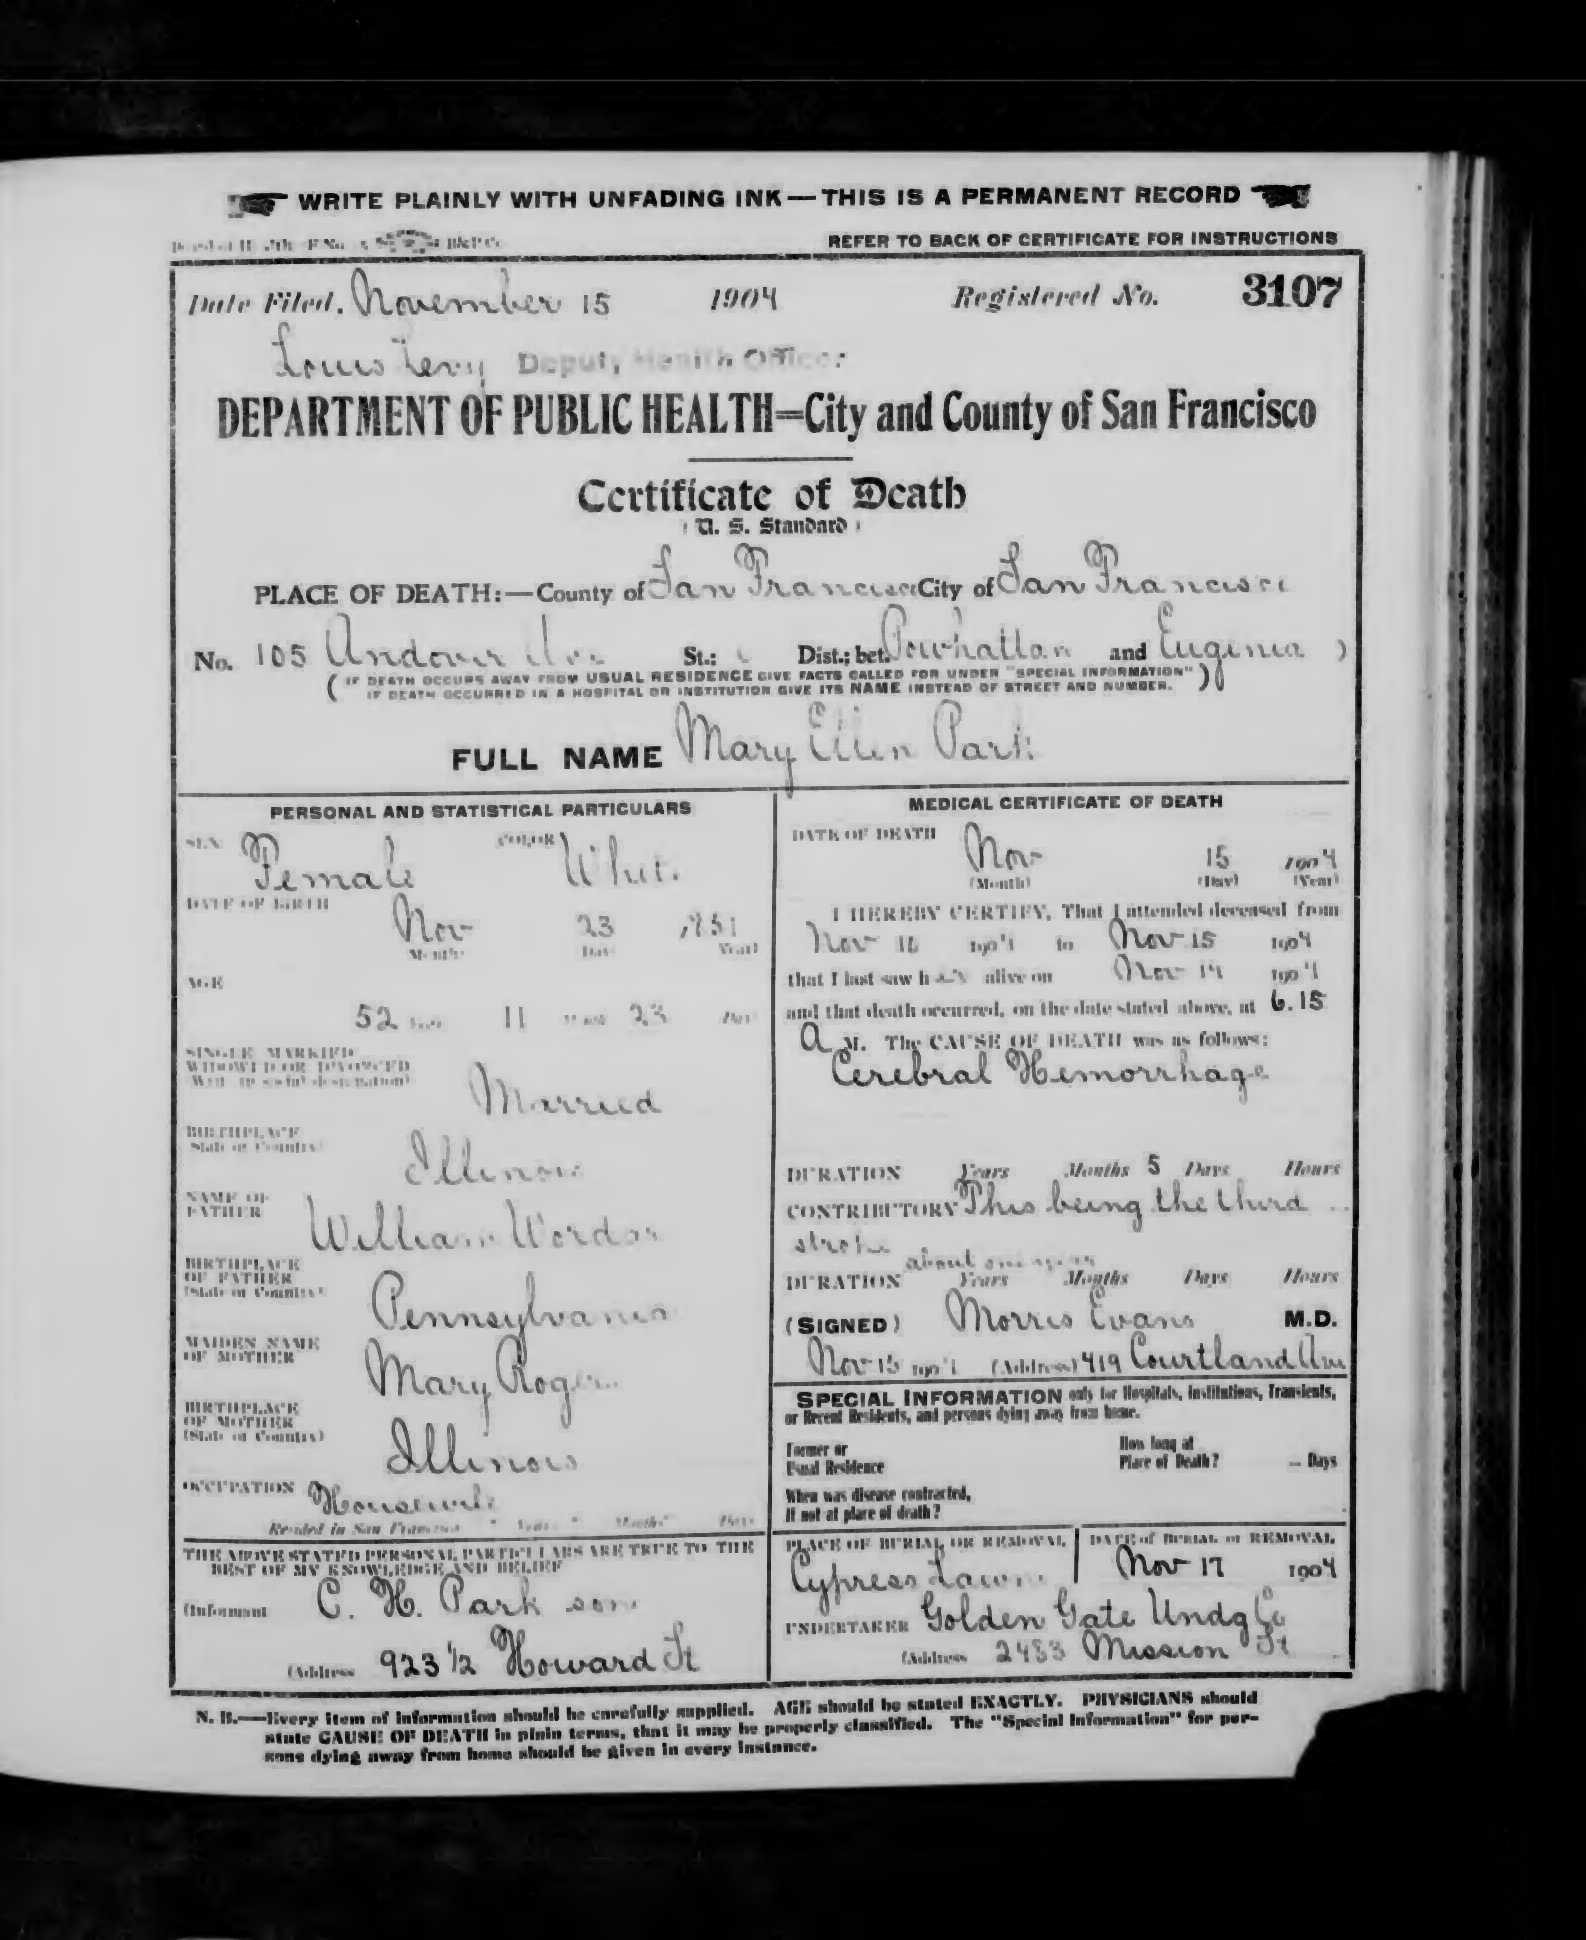 WRITE PLAINLY WITH UNFADING INK — THIS IS A PERMANENT RECORD
REFER TO BACK OF CERTIFICATE FOR INSTRUCTIONS
Date Filed, November 15 1904 Registered No. 3107
Louis Levy Deputy Health Officer
DEPARTMENT OF PUBLIC HEALTH=City and County of San Francisco
Certificate of Death
(U. S. Standard)
PLACE OF DEATH:—County of San Francisco City of San Francisco
No. 105 Andover Ave St.; Dist.; bet. Powhattan and Eugenia )
( IF DEATH OCCURS AWAY FROM USUAL RESIDENCE GIVE FACTS CALLED FOR UNDER "SPECIAL INFORMATION" )
IF DEATH OCCURRED IN A HOSPITAL OR INSTITUTION GIVE ITS NAME INSTEAD OF STREET AND NUMBER.
FULL NAME Mary Ellen Park
PERSONAL AND STATISTICAL PARTICULARS
SEX Female COLOR White
DATE OF BIRTH
Nov 23 1851
(Month) (Day) (Year)
AGE
52 Years 11 Months 23 Days
SINGLE MARRIED
WIDOWED OR DIVORCED
(Write in social designation)
Married
BIRTHPLACE
(State or Country)
Illinois
NAME OF
FATHER
William Worden
BIRTHPLACE
OF FATHER
(State or Country)
Pennsylvania
MAIDEN NAME
OF MOTHER
Mary Rogers
BIRTHPLACE
OF MOTHER
(State or Country)
Illinois
OCCUPATION Housewife
Resided in San Francisco Years Months Days
THE ABOVE STATED PERSONAL PARTICULARS ARE TRUE TO THE
BEST OF MY KNOWLEDGE AND BELIEF
(Informant C. H. Park son
(Address 923 1/2 Howard St
MEDICAL CERTIFICATE OF DEATH
DATE OF DEATH
Nov 15 1904
(Month) (Day) (Year)
I HEREBY CERTIFY, That I attended deceased from
Nov 1904 to Nov 15 1904
that I last saw her alive on Nov 14 1904
and that death occurred, on the date stated above, at 6.15
A M. The CAUSE OF DEATH was as follows:
Cerebral Hemorrhage
DURATION Years Months 5 Days Hours
CONTRIBUTORY This being the third
stroke
about one year
DURATION Years Months Days Hours
(SIGNED) Morris Evans M.D.
Nov 15 1904 (Address) 419 Courtland Ave
SPECIAL INFORMATION only for Hospitals, Institutions, Transients,
or Recent Residents, and persons dying away from home.
Former or
Usual Residence
How long at
Place of Death? Days
When was disease contracted,
If not at place of death?
PLACE OF BURIAL OR REMOVAL
Cypress Lawn
DATE of BURIAL or REMOVAL
Nov 17 1904
UNDERTAKER Golden Gate Undg Co
(Address 2483 Mission St
N. B.—Every item of information should be carefully supplied. AGE should be stated EXACTLY. PHYSICIANS should
state CAUSE OF DEATH in plain terms, that it may be properly classified. The "Special Information" for per-
sons dying away from home should be given in every instance.